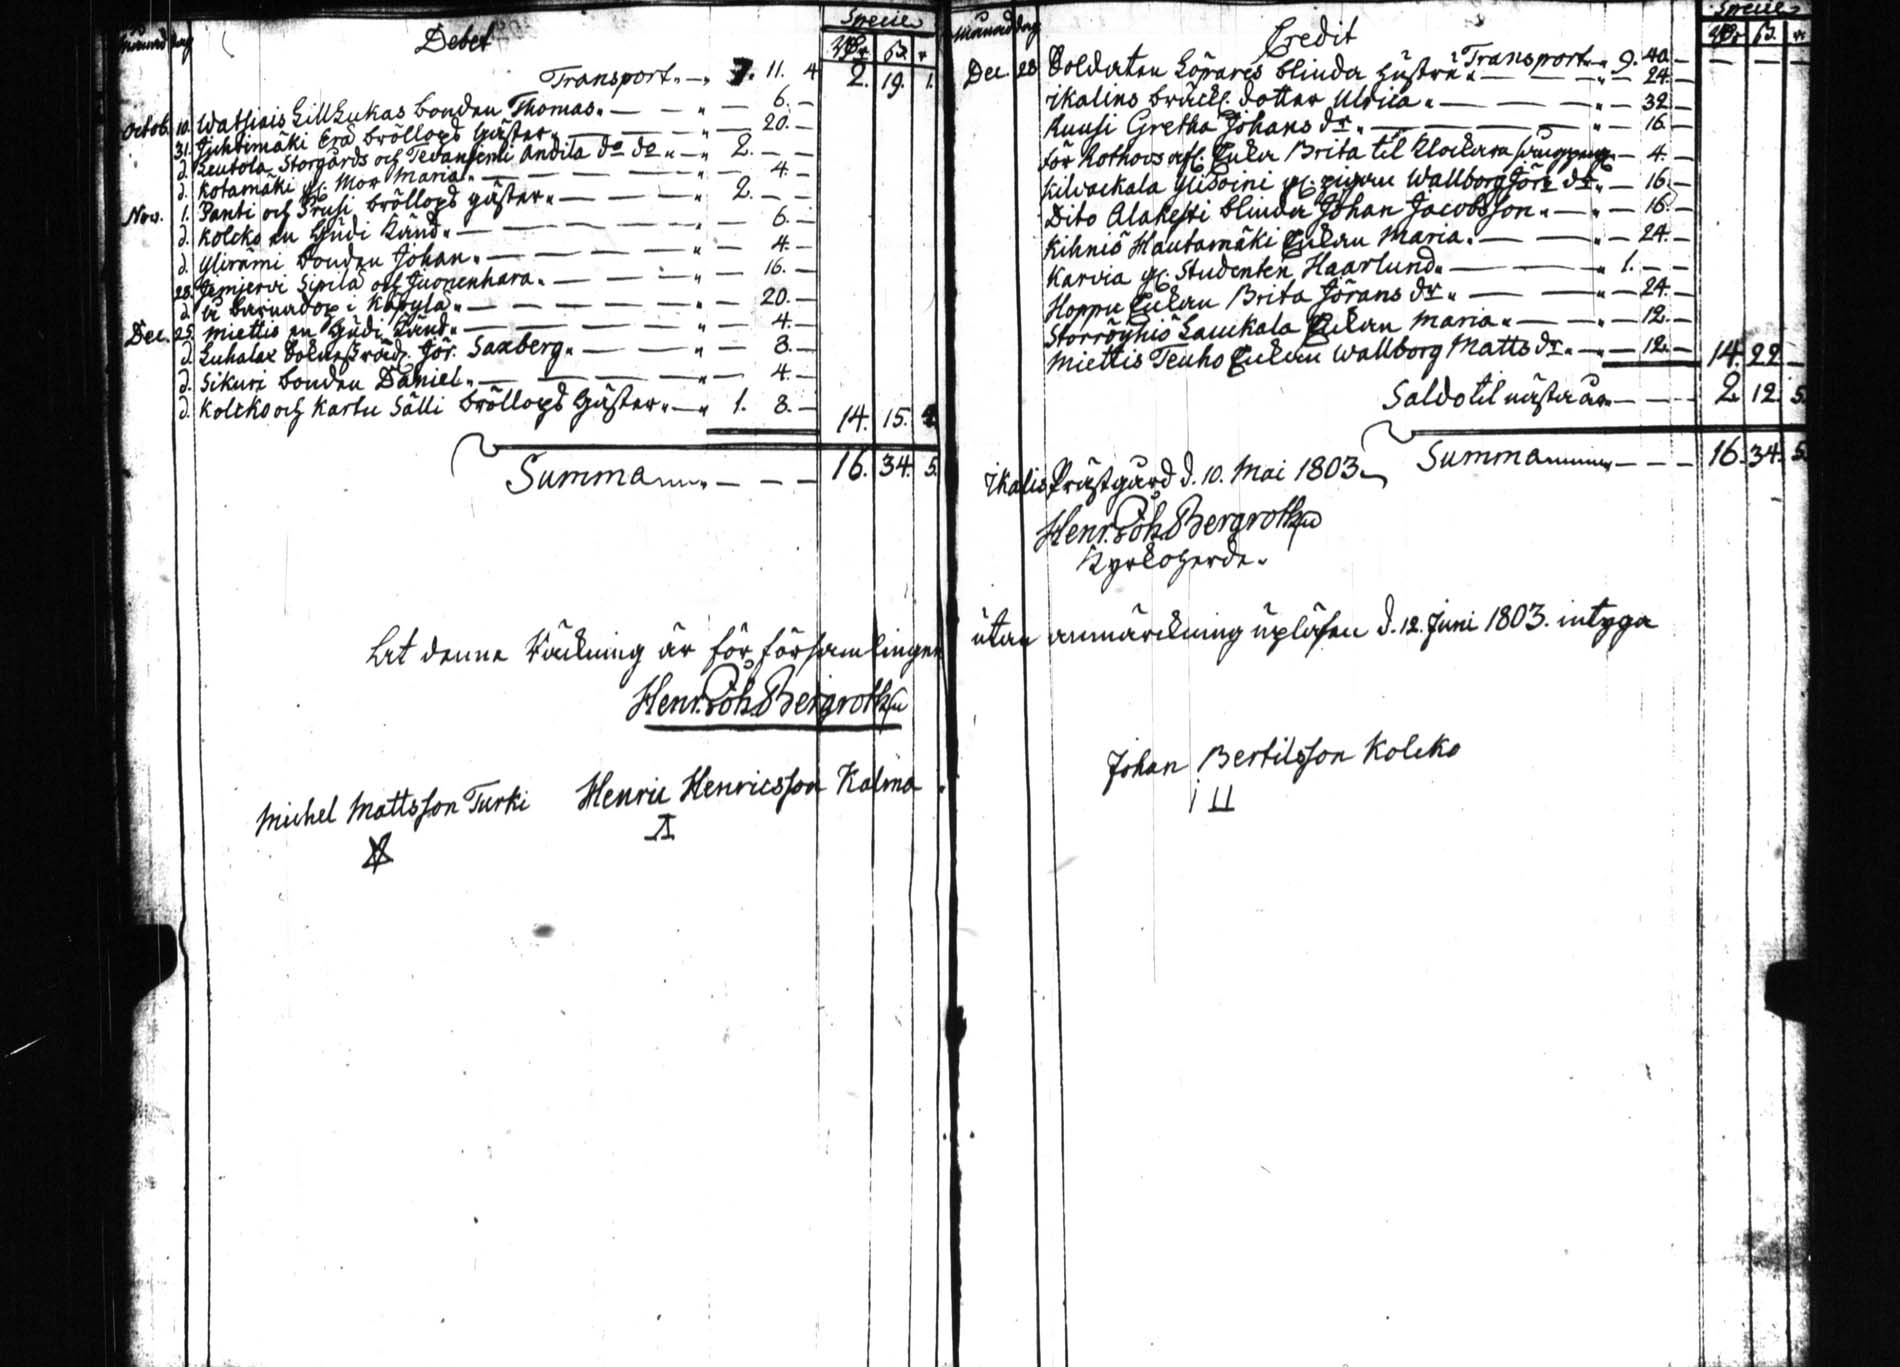 Debet
Specie
Månad dag
Rdr ß. r
Transport. 7. 11. 4 2. 19. 1.
Octob. 10. Watsiais LillLukas bonden Thomas. 6.
31. Juhtimäki Erä bröllops gäster. 20.
d. Leutola Storgårds och Tevaniemi Andila do do 2.
d. Kotamäki Mor Maria. 4.
Nov. 1. Panti och Prusi bröllops gäster. 2.
d. Kolcko en Gudi Känd. 6.
d. Ylirämi bonden Johan. 4.
28. Jämjervi Sipilä och Juonenhara. 16.
d. barnadop i Karylä 20.
Dec. 25. Miettis en Gudi Känd. 4.
d. Luhalax Jör. Saxberg. 8.
d. Sikuri bonden Daniel. 4.
d. Kolcko och Kartu Sälli bröllops gäster. 1. 8. 14. 15. 4
Summa 16. 34. 5.
Credit
Specie
Månad dag
Rdr ß. r
Transport 9. 40
Dec. 28 Soldaten Löpares blinda hustru 24.
Ikalins dotter Ulrica. 32
Ruusi Gretha Johans dr. 16
för Rothovs Enka Brita til Klockare 4.
Kilvackala Ylisoini Wallborg Jörs dr. 16.
Dito Alakesti blinda Johan Jacobsson. 16.
Kihniö Hautamäki Enkan Maria. 24.
Karvia Studenten Haarlund 1.
Hoppu Enkan Brita Jörans dr. 24.
Storröyhiö Laukala Enkan Maria. 12.
Miettis Teuho Enkan Wallborg Matts dr. 12. 14. 22
Saldo til nästa år 2. 12. 5.
Summa 16. 34. 5.
Ikalis Prästgård d. 10. Mai 1803.
Henr. Joh. Bergroth
Kyrkoherde.
At denna Räckning är för församlingen utan anmärckning upläsen d. 12. Juni 1803. intyga
Henr. Joh. Bergroth
Michel Mattsson Turki Henric Henricsson Kalma. Johan Bertilsson Kolcko